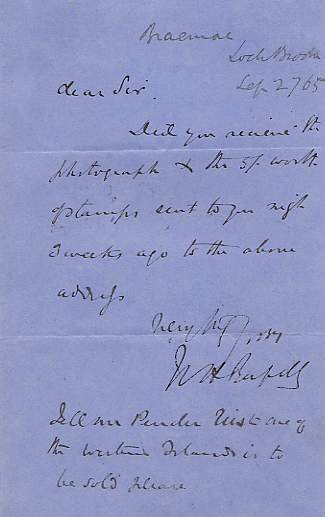 Braemar
Loch Broom
Sep 27/65
dear Sir.
Did you receive the
photograph & the 5/ worth
of stamps sent to you nigh
3 weeks ago to the above
address
Very
W H
Tell Mr Pender Uist one of
the western Islands is to
be sold please